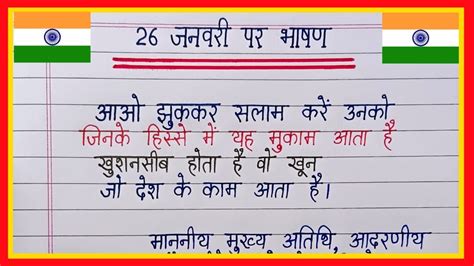 26 जनवरी पर भाषण
आओ झुककर सलाम करें उनको
जिनके हिस्से में यह मुकाम आता है
खुशनसीब होता है वो खून
जो देश के काम आता है।
माननीय मुख्य अतिथि, आदरणीय